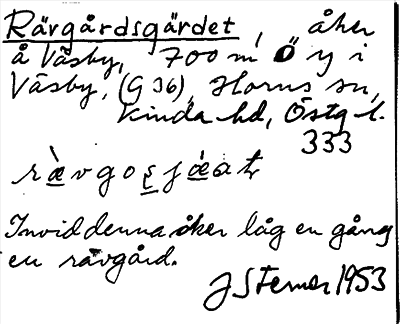 Rävgårdsgärdet, åker
å Väsby, 700 m Ö y i
Väsby, (G 36), Horns sn,
Kinda hd, Östg l.
333
Invid denna åker låg en gång
en rävgård.
J Sterner 1953